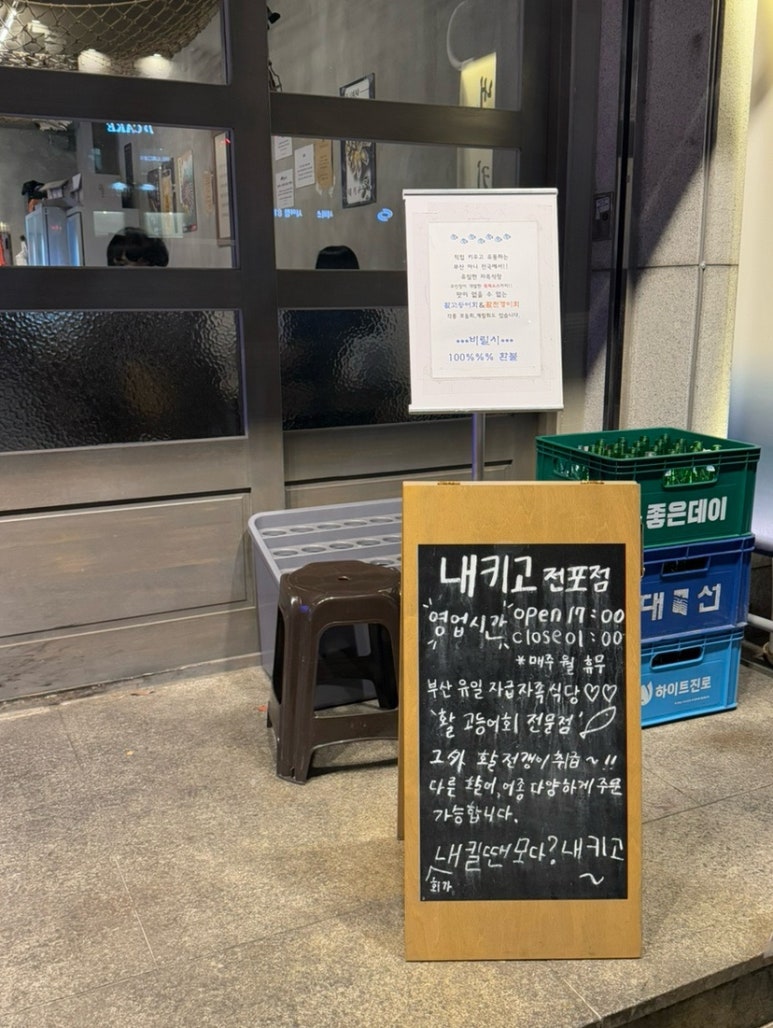 CAKE
내
키
직접 키우고 유통하는
부산 아니 전국에서!!
유일한 자족식당
맛이 없을 수 없는
활고등어회&활전갱이회
각종 모듬회,계절회도 있습니다.
***비릴시***
100%%% 환불
좋은데이
대선
하이트진로
내키고 전포점
영업시간 open 17:00
close 01:00
*매주 월 휴무
부산 유일 자급자족식당♡♡
'활 고등어회 전문점'
그외 활전갱이 취급~!!
다른 활어,어종 다양하게 주문
가능합니다.
내킬땐 모다? 내키고~
회가